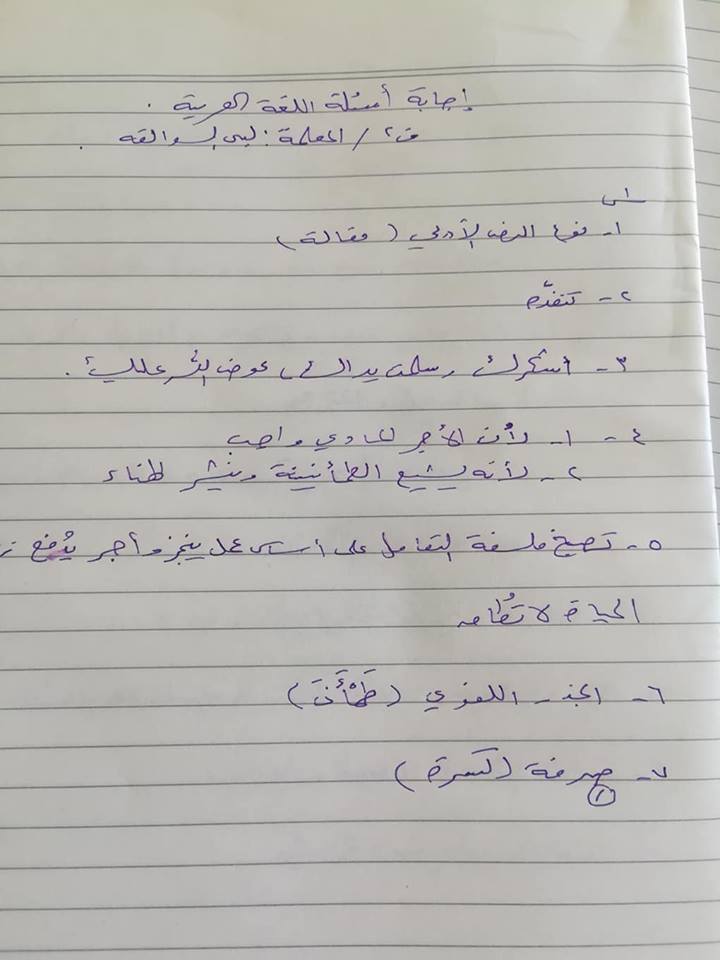 إجابة أسئلة اللغة العربية .
ف٢ / المعلمة : لبنى السوالقه .
س١
١- نوع النص الأدبي ( مقالة )
٢- تتقدّم
٣- أشكرك ، سلمت يداك ، عوض الله عليك .
٤- ١- لأن الأجر المادي واجب
٢- لأنه يشيع الطمأنينة وينشر الهناء
٥- تصبح فلسفة التعامل على أساس عمل ينجز وأجر يُدفع
الحياة لا تُطاق
٦- الجذر اللغوي ( طَمْأَنَ )
٧- صرفة ( كسرة )
١